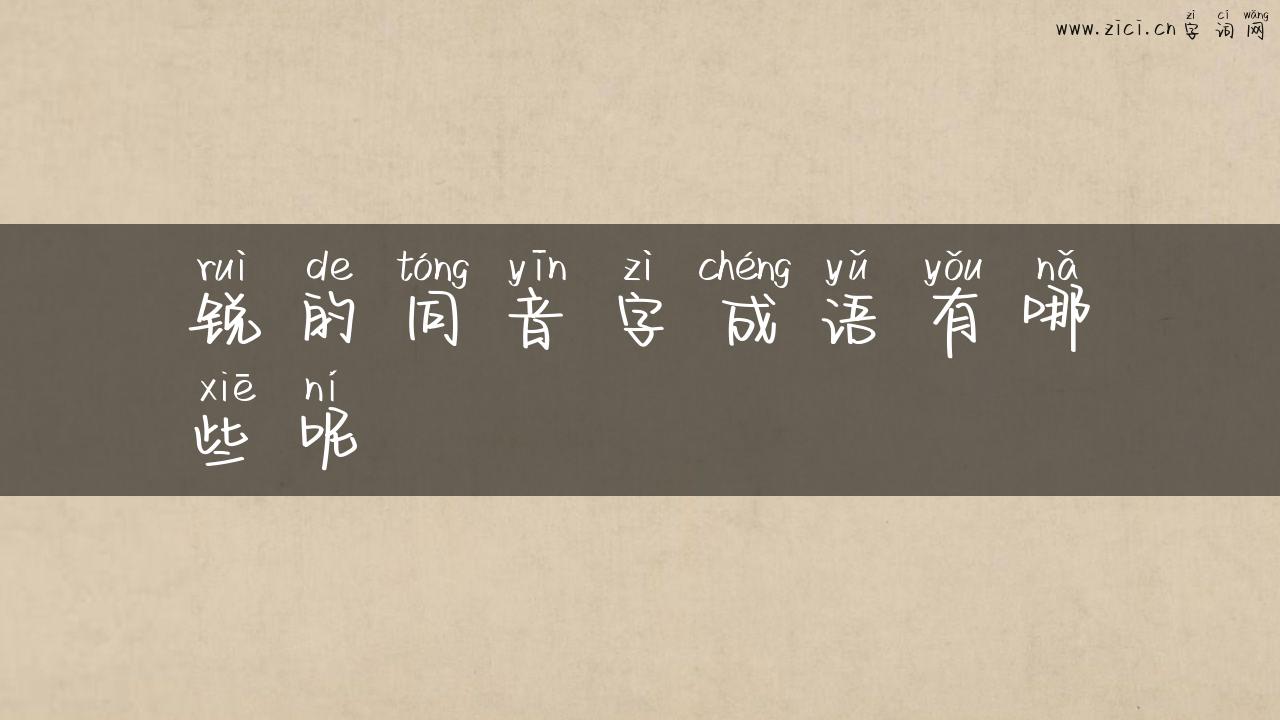 zì cí wǎng
www.zici.cn 字词网
ruì de tóng yīn zì chéng yǔ yǒu nǎ
锐的同音字成语有哪
xiē ní
些呢